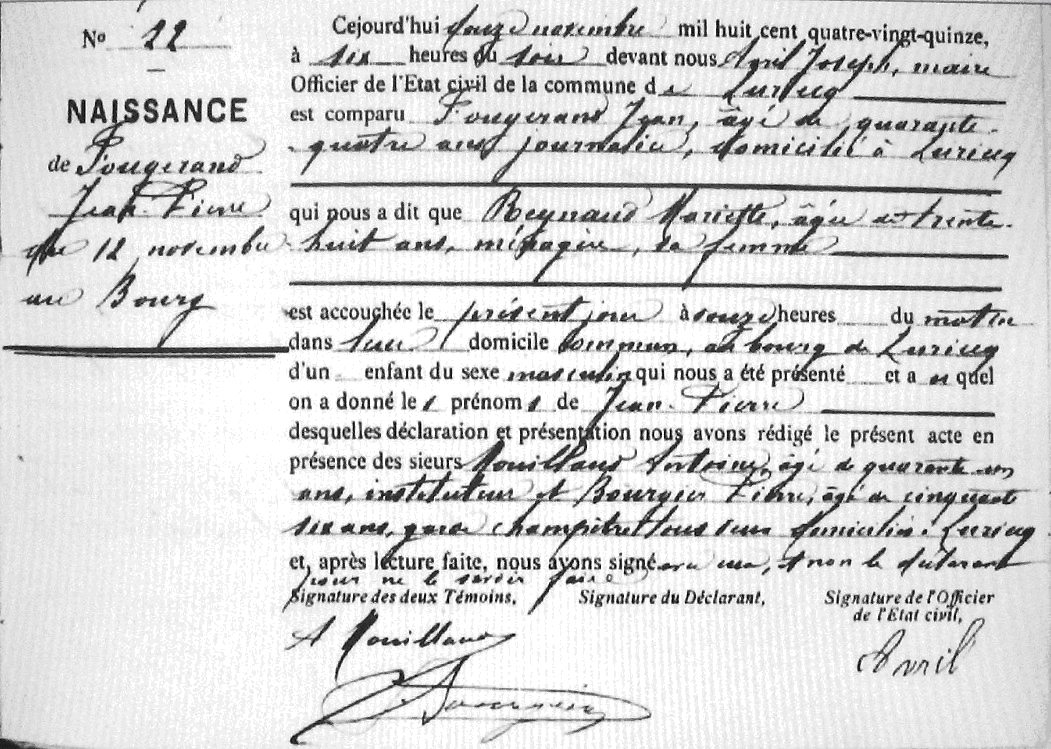 Nº 22
NAISSANCE
de Fougerand
Jean Pierre
du 12 novembre
au Bourg
Cejourd'hui douze novembre mil huit cent quatre-vingt-quinze,
à six heures du soir devant nous Avril Joseph, maire
Officier de l'Etat civil de la commune de Luricq
est comparu Fougerand Jean, âgé de quarante-
quatre ans journalier, domicilié à Luricq
qui nous a dit que Reynaud Mariette, âgée de trente-
huit ans, ménagère, sa femme
est accouchée le présent jour à onze heures du matin
dans leur domicile commun, au bourg de Luricq
d'un enfant du sexe masculin qui nous a été présenté et auquel
on a donné les prénoms de Jean-Pierre
desquelles déclaration et présentation nous avons rédigé le présent acte en
présence des sieurs Rouilland Antoine, âgé de quarante-un
ans, instituteur et Bourgier Pierre, âgé de cinquante
six ans, garde champêtre tous deux domiciliés à Luricq
et, après lecture faite, nous avons signé avec eux, et non le déclarant
pour ne le savoir faire
Signature des deux Témoins, Signature du Déclarant, Signature de l'Officier
de l'Etat civil,
A Rouilland
Avril